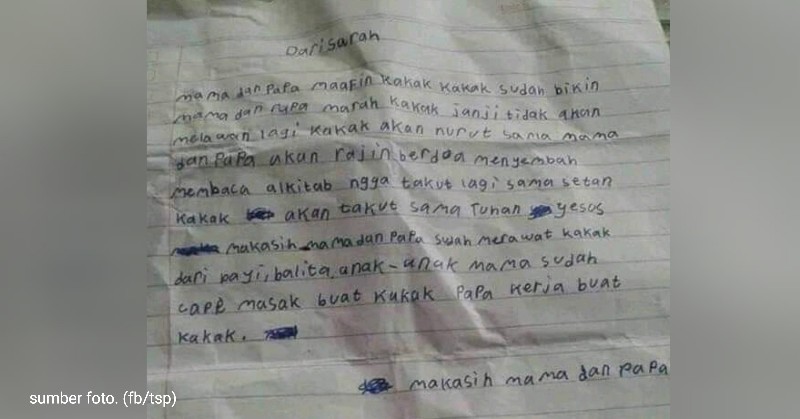 Dari sarah
mama dan PaPa maaFin kakak kakak sudah bikin
mama dan PaPa marah kakak janji tidak akan
melawan lagi kakak akan nurut sama mama
dan PaPa akan rajin berdoa menyembah
membaca alkitab ngga takut lagi sama setan
kakak akan takut sama Tuhan yesus
makasih mama dan PaPa sudah merawat kakak
dari bayi, balita, anak-anak mama sudah
caPE masak buat kakak PaPa kerja buat
kakak.
makasih mama dan PaPa
sumber foto. (fb/tsp)